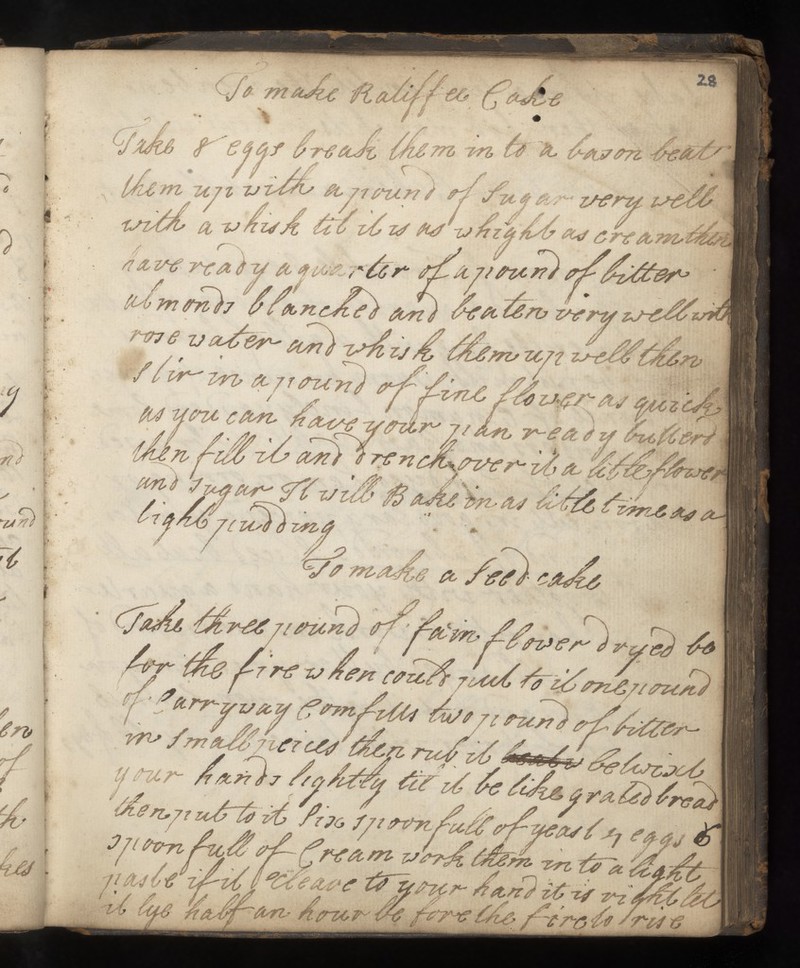 28
To make Raliffee Cake
Take 8 eggs break them in to a bason beat
them up with a pound of Sugar very well
with a whisk til it is as whight as cream then
have ready a quarter of a pound of bitter
almonds blanched and beaten very well with
rose water and whisk them up well then
Stir in a pound of fine flower as quick
as you can have your pan ready butterd
then fill it and drench over it a litle flower
and sugar It will Bake in as litle time as a
light pudding
To make a Seed cake
Take three pound of fain flower dryed be
for the fire when could put to it one pound
of Carryway Comfitts two pound of bitter
in Small peices then rub it betwixt
your hands lightly til it be like grated bread
then put to it Six spoonfull of yeast 4 eggs 6
spoonfull of Cream work them in to a light
paste if it Cleave to your hand it is right let
it lye half an hour be fore the fire to rise